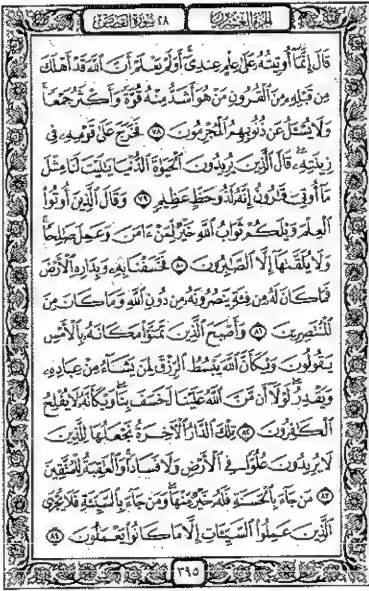 الجزء العشرون ٢٨ سورة القصص
قَالَ إِنَّمَا أُوتِيتُهُ عَلَىٰ عِلْمٍ عِندِي أَوَلَمْ يَعْلَمْ أَنَّ اللَّهَ قَدْ أَهْلَكَ
مِن قَبْلِهِ مِنَ الْقُرُونِ مَنْ هُوَ أَشَدُّ مِنْهُ قُوَّةً وَأَكْثَرُ جَمْعًا
وَلَا يُسْأَلُ عَن ذُنُوبِهِمُ الْمُجْرِمُونَ ٧٨ فَخَرَجَ عَلَىٰ قَوْمِهِ فِي
زِينَتِهِ قَالَ الَّذِينَ يُرِيدُونَ الْحَيَاةَ الدُّنْيَا يَالَيْتَ لَنَا مِثْلَ
مَا أُوتِيَ قَارُونُ إِنَّهُ لَذُو حَظٍّ عَظِيمٍ ٧٩ وَقَالَ الَّذِينَ أُوتُوا
الْعِلْمَ وَيْلَكُمْ ثَوَابُ اللَّهِ خَيْرٌ لِّمَنْ ءَامَنَ وَعَمِلَ صَالِحًا
وَلَا يُلَقَّاهَا إِلَّا الصَّابِرُونَ ٨٠ فَخَسَفْنَا بِهِ وَبِدَارِهِ الْأَرْضَ
فَمَا كَانَ لَهُ مِن فِئَةٍ يَنصُرُونَهُ مِن دُونِ اللَّهِ وَمَا كَانَ مِنَ
الْمُنتَصِرِينَ ٨١ وَأَصْبَحَ الَّذِينَ تَمَنَّوْا مَكَانَهُ بِالْأَمْسِ
يَقُولُونَ وَيْكَأَنَّ اللَّهَ يَبْسُطُ الرِّزْقَ لِمَن يَشَاءُ مِنْ عِبَادِهِ
وَيَقْدِرُ لَوْلَا أَن مَّنَّ اللَّهُ عَلَيْنَا لَخَسَفَ بِنَا وَيْكَأَنَّهُ لَا يُفْلِحُ
الْكَافِرُونَ ٨٢ تِلْكَ الدَّارُ الْآخِرَةُ نَجْعَلُهَا لِلَّذِينَ
لَا يُرِيدُونَ عُلُوًّا فِي الْأَرْضِ وَلَا فَسَادًا وَالْعَاقِبَةُ لِلْمُتَّقِينَ
٨٣ مَن جَاءَ بِالْحَسَنَةِ فَلَهُ خَيْرٌ مِّنْهَا وَمَن جَاءَ بِالسَّيِّئَةِ فَلَا يُجْزَى
الَّذِينَ عَمِلُوا السَّيِّئَاتِ إِلَّا مَا كَانُوا يَعْمَلُونَ ٨٤
٣٩٥